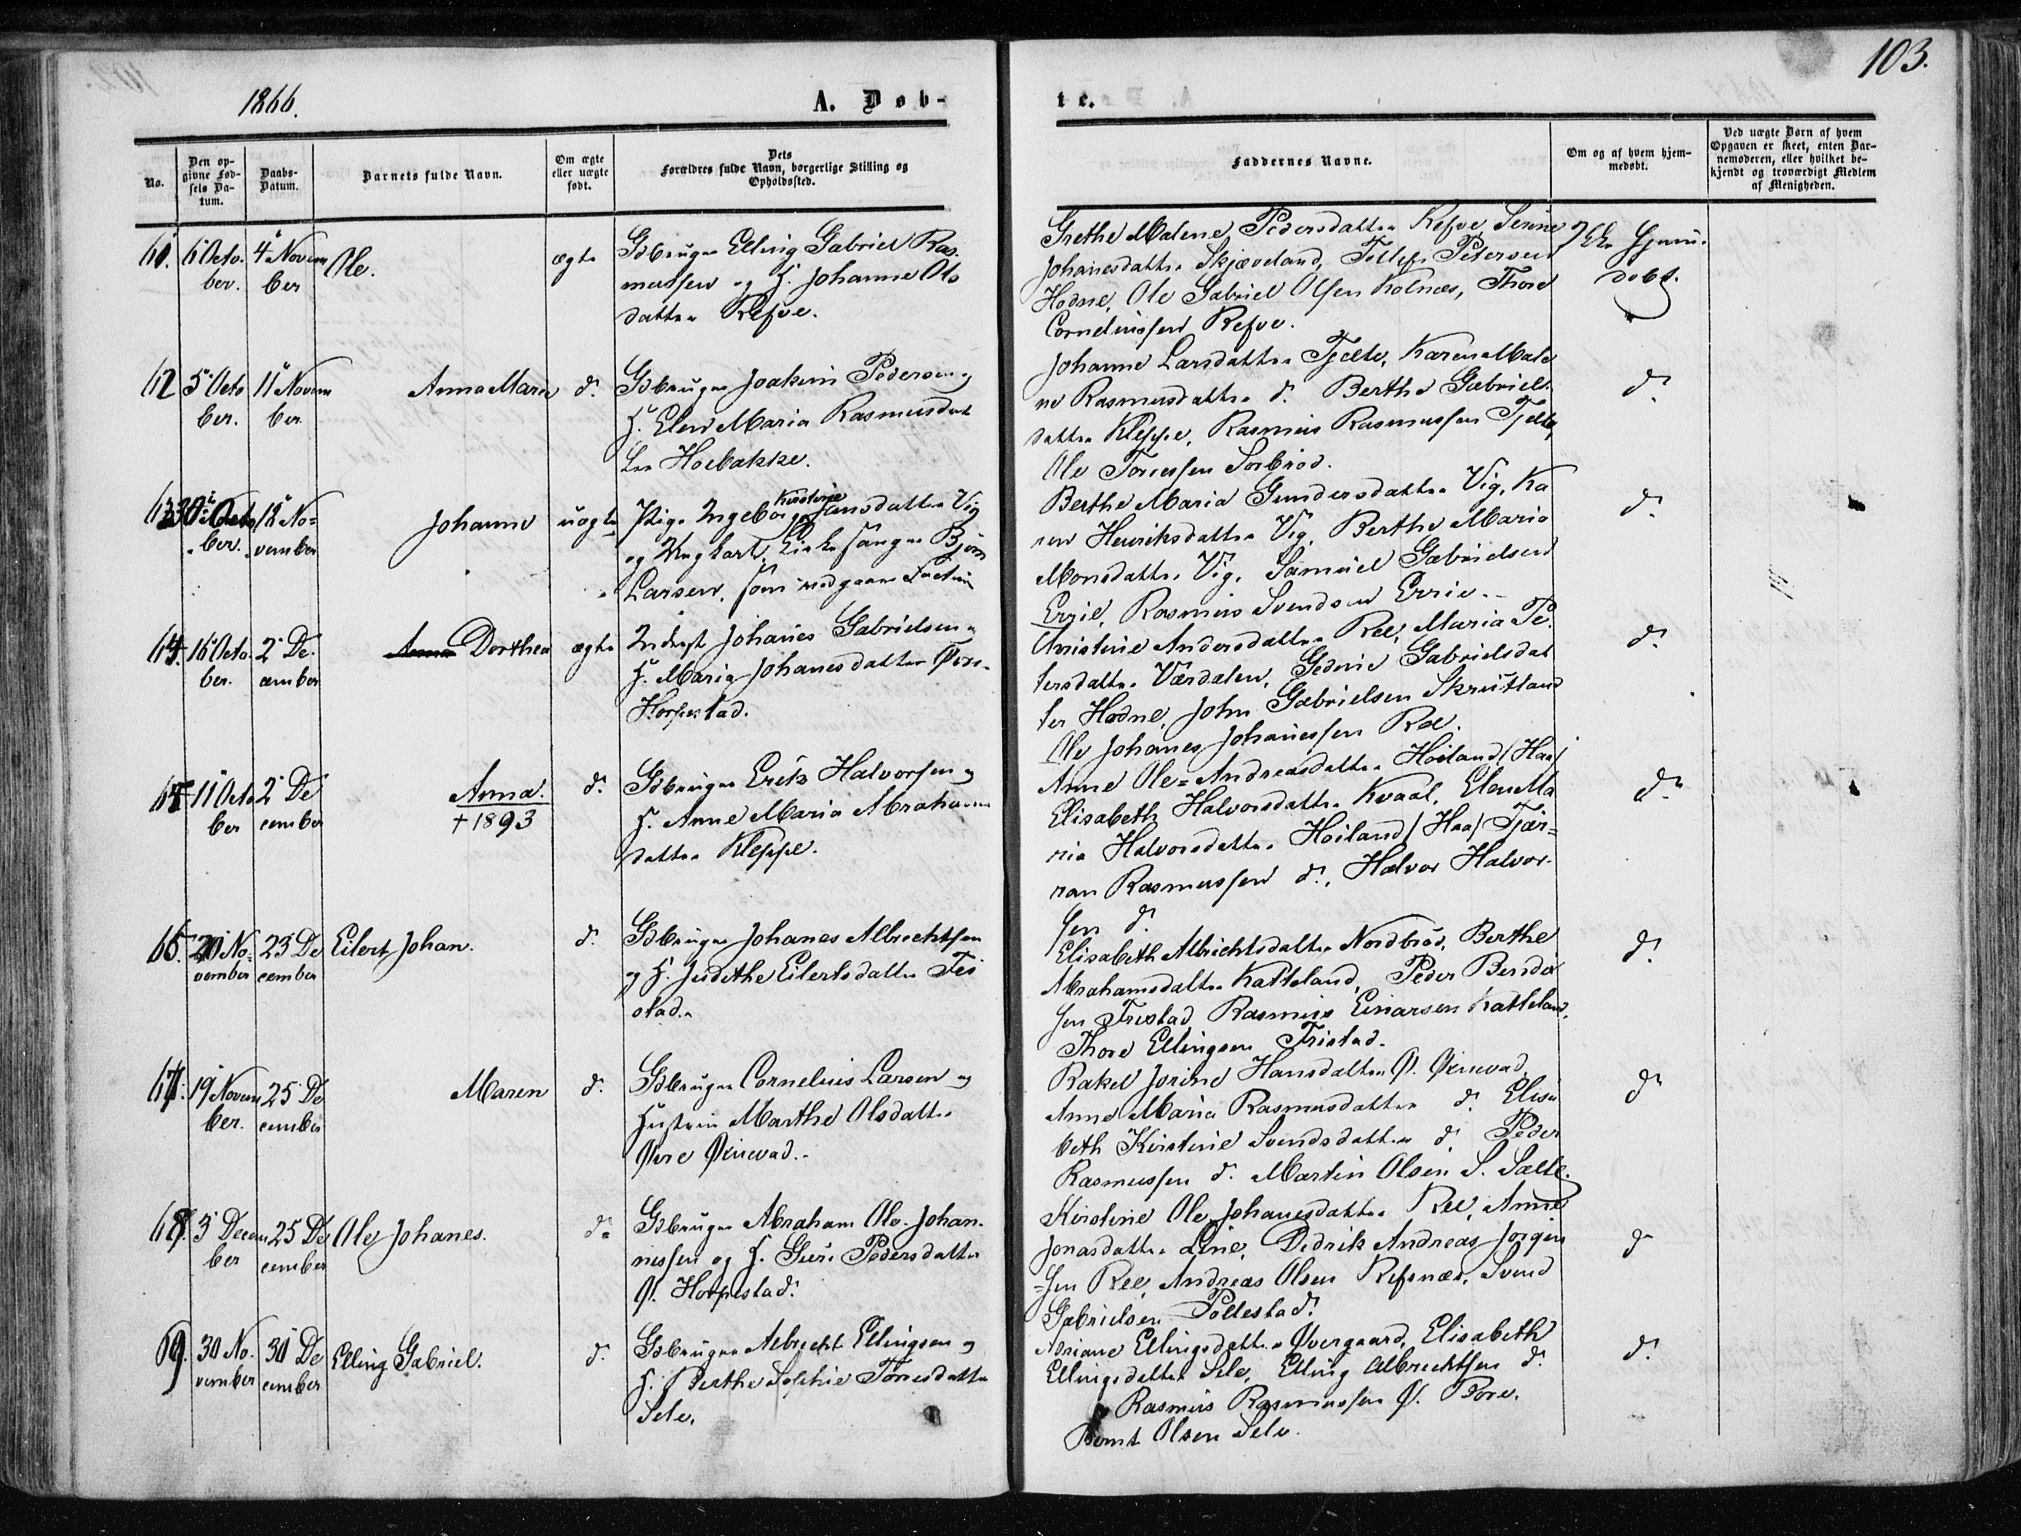 103.
1866.
A. Døb-
te.
No.
Den op-
givne Fød-
sels Da-
tum.
Daabs-
Datum.
Barnets fulde Navn.
Om ægte
eller uægte
født.
Dets
Forældres fulde Navn, borgerlige Stilling og
Opholdssted.
Faddernes Navne.
Om og af hvem hjem-
medøbt.
Ved uægte Børn af hvem
Opgaven er skeet, enten Bar-
nemoderen, eller hvilket be-
kjendt og troværdigt Medlem
af Menigheden.
61. 6 Octo- 4 Novem
ber. ber
Ole.
ægte
Gbruger Elling Gabriel Ras-
mussen og H. Johanne Ols
datter Refve.
Grethe Malene Pedersdatter Refve, Serine
Johanesdatter Skjæveland, Tollef Petersen
Hodne, Ole Gabriel Olsen Kolnæs, Thore
Corneliussen Refve.
Ikke Hjemme-
døbt.
62 5 Octo 11 Novem
ber. ber.
Anna Marie
do.
Gbruger Joakim Pedersen og
H. Elen Maria Rasmusdat
ter Hoibakke.
Johanne Larsdatter Tjelte, Karen Male
ne Rasmusdatter do. Berthe Gabriels
datter Kleppe, Rasmus Rasmussen Tjelte,
Ole Tønnessen Sørbrød.
do.
63 30 Octo 18 No-
ber. vember
Johanne
uægte
Pige Ingeborg Kirstine Jansdatter Vig
og Ungkarl, Kirkesanger Bjørn
Larsen, som vedgaaer Factum
Berthe Maria Gundersdatter Vig, Ka
ren Henriksdatter Vig, Berthe Maria
Monsdatter Vig, Samuel Gabrielsen
Errie, Rasmus Svendsen Errie.
do.
64. 16 Octo- 2 De-
ber. cember
Anna Dorthea
ægte
Inderst Johanes Gabrielsen og
H. Maria Johanesdatter Øvre
Horpestad.
Christine Andersdatter Ree, Maria Pe-
tersdatter Værdalen, Gedine Gabrielsdat
ter Hodne, John Gabrielsen Skrutland
Ole Johanes Johanessen Ree.
do.
65 11 Octo 2 De
ber cember
Anna.
+ 1893
do.
Gbruger Erik Halvorsen og
H. Anne Maria Abrahams
datter Kleppe.
Anne Ole-Andreasdatter Høiland (Haa)
Elisabeth Halvorsdatter Kvaal, Elen Ma
ria Halvorsdatter Høiland (Haa) Tjer-
ran Rasmussen do., Halvor Halvor-
sen do.
do.
66. 20 No- 23 De
vember cember
Eilert Johan.
do.
Gbruger Johanes Albrechtsen
og H. Judithe Eilertsdatter Tei
stad.
Elisabeth Albrichtsdatter Nordbrød, Berthe
Abrahamsdatter Katteland, Peder Bendix
sen Friestad Rasmus Einarsen Katteland,
Thore Ellingsen Fristad.
do.
67. 19 Novem 25 De
ber. cember
Maren
do.
Gbruger Cornelius Larsen og
Hustru Marthe Olsdatter
Øvre Øxnevad.
Rakel Jorine Hansdatter Ø. Øxnevad,
Anne Maria Rasmusdatter do. Elisa
beth Kirstine Svendsdatter do Peder
Rasmussen do. Martin Olsen S. Sælte
do
68. 3 Decem 25 De
ber cember
Ole Johanes.
do
Gbruger Abraham Ole-Johan-
nessen og H. Guri Pedersdatter
Ø. Horpestad.
Kirstine Ole-Johanesdatter Ree, Anne
Jonasdatter Line, Didrik Andreas Jørgen
sen Ree, Andreas Olsen Refsnæs, Svend
Gabrielsen Pollestad.
do
69. 30 No- 30 De
vember cember
Elling Gabriel.
do.
Gbruger Albrecht Ellingsen og
H. Berthe Sophie Tønesdatter
Sele.
Adriane Ellingsdatter Øvregaard, Elisabeth
Ellingsdatter Sele, Elling Albrechtsen do.
Rasmus Rasmussen Ø. Tore.
Bernt Olsen Sele.
do.